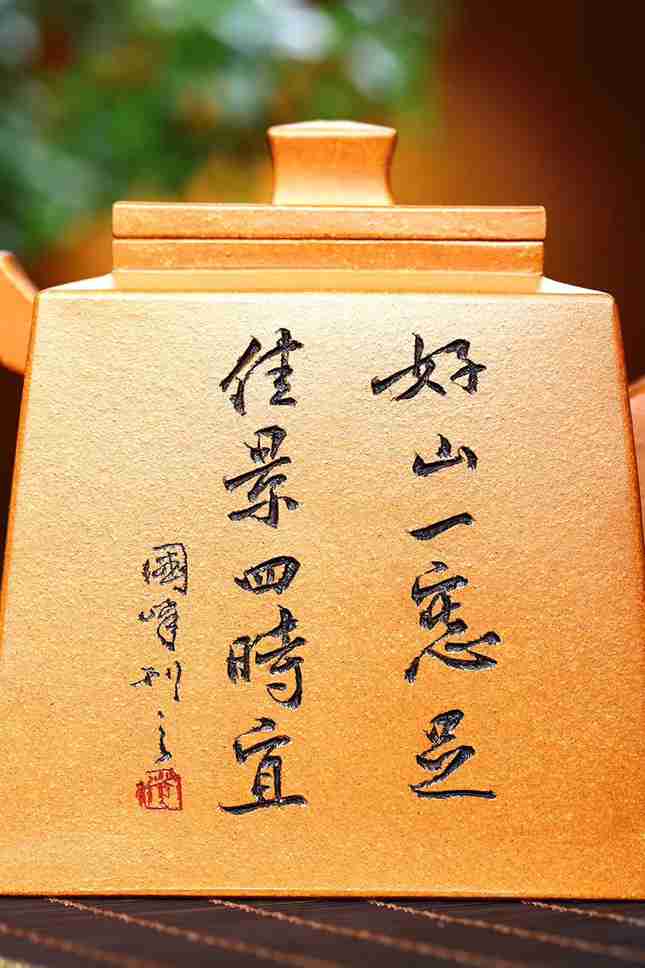 好山一窓足
佳景四時宜
國峰刻之